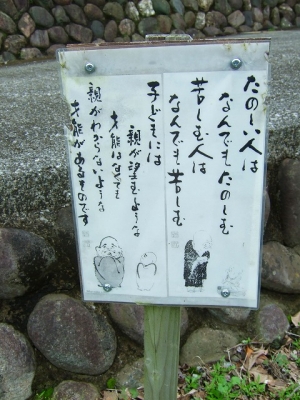 たのしい人は
なんでもたのしむ
苦しむ人は
なんでも苦しむ
子どもには
親が望むような
才能はなくても
親がわからないような
才能があるものです